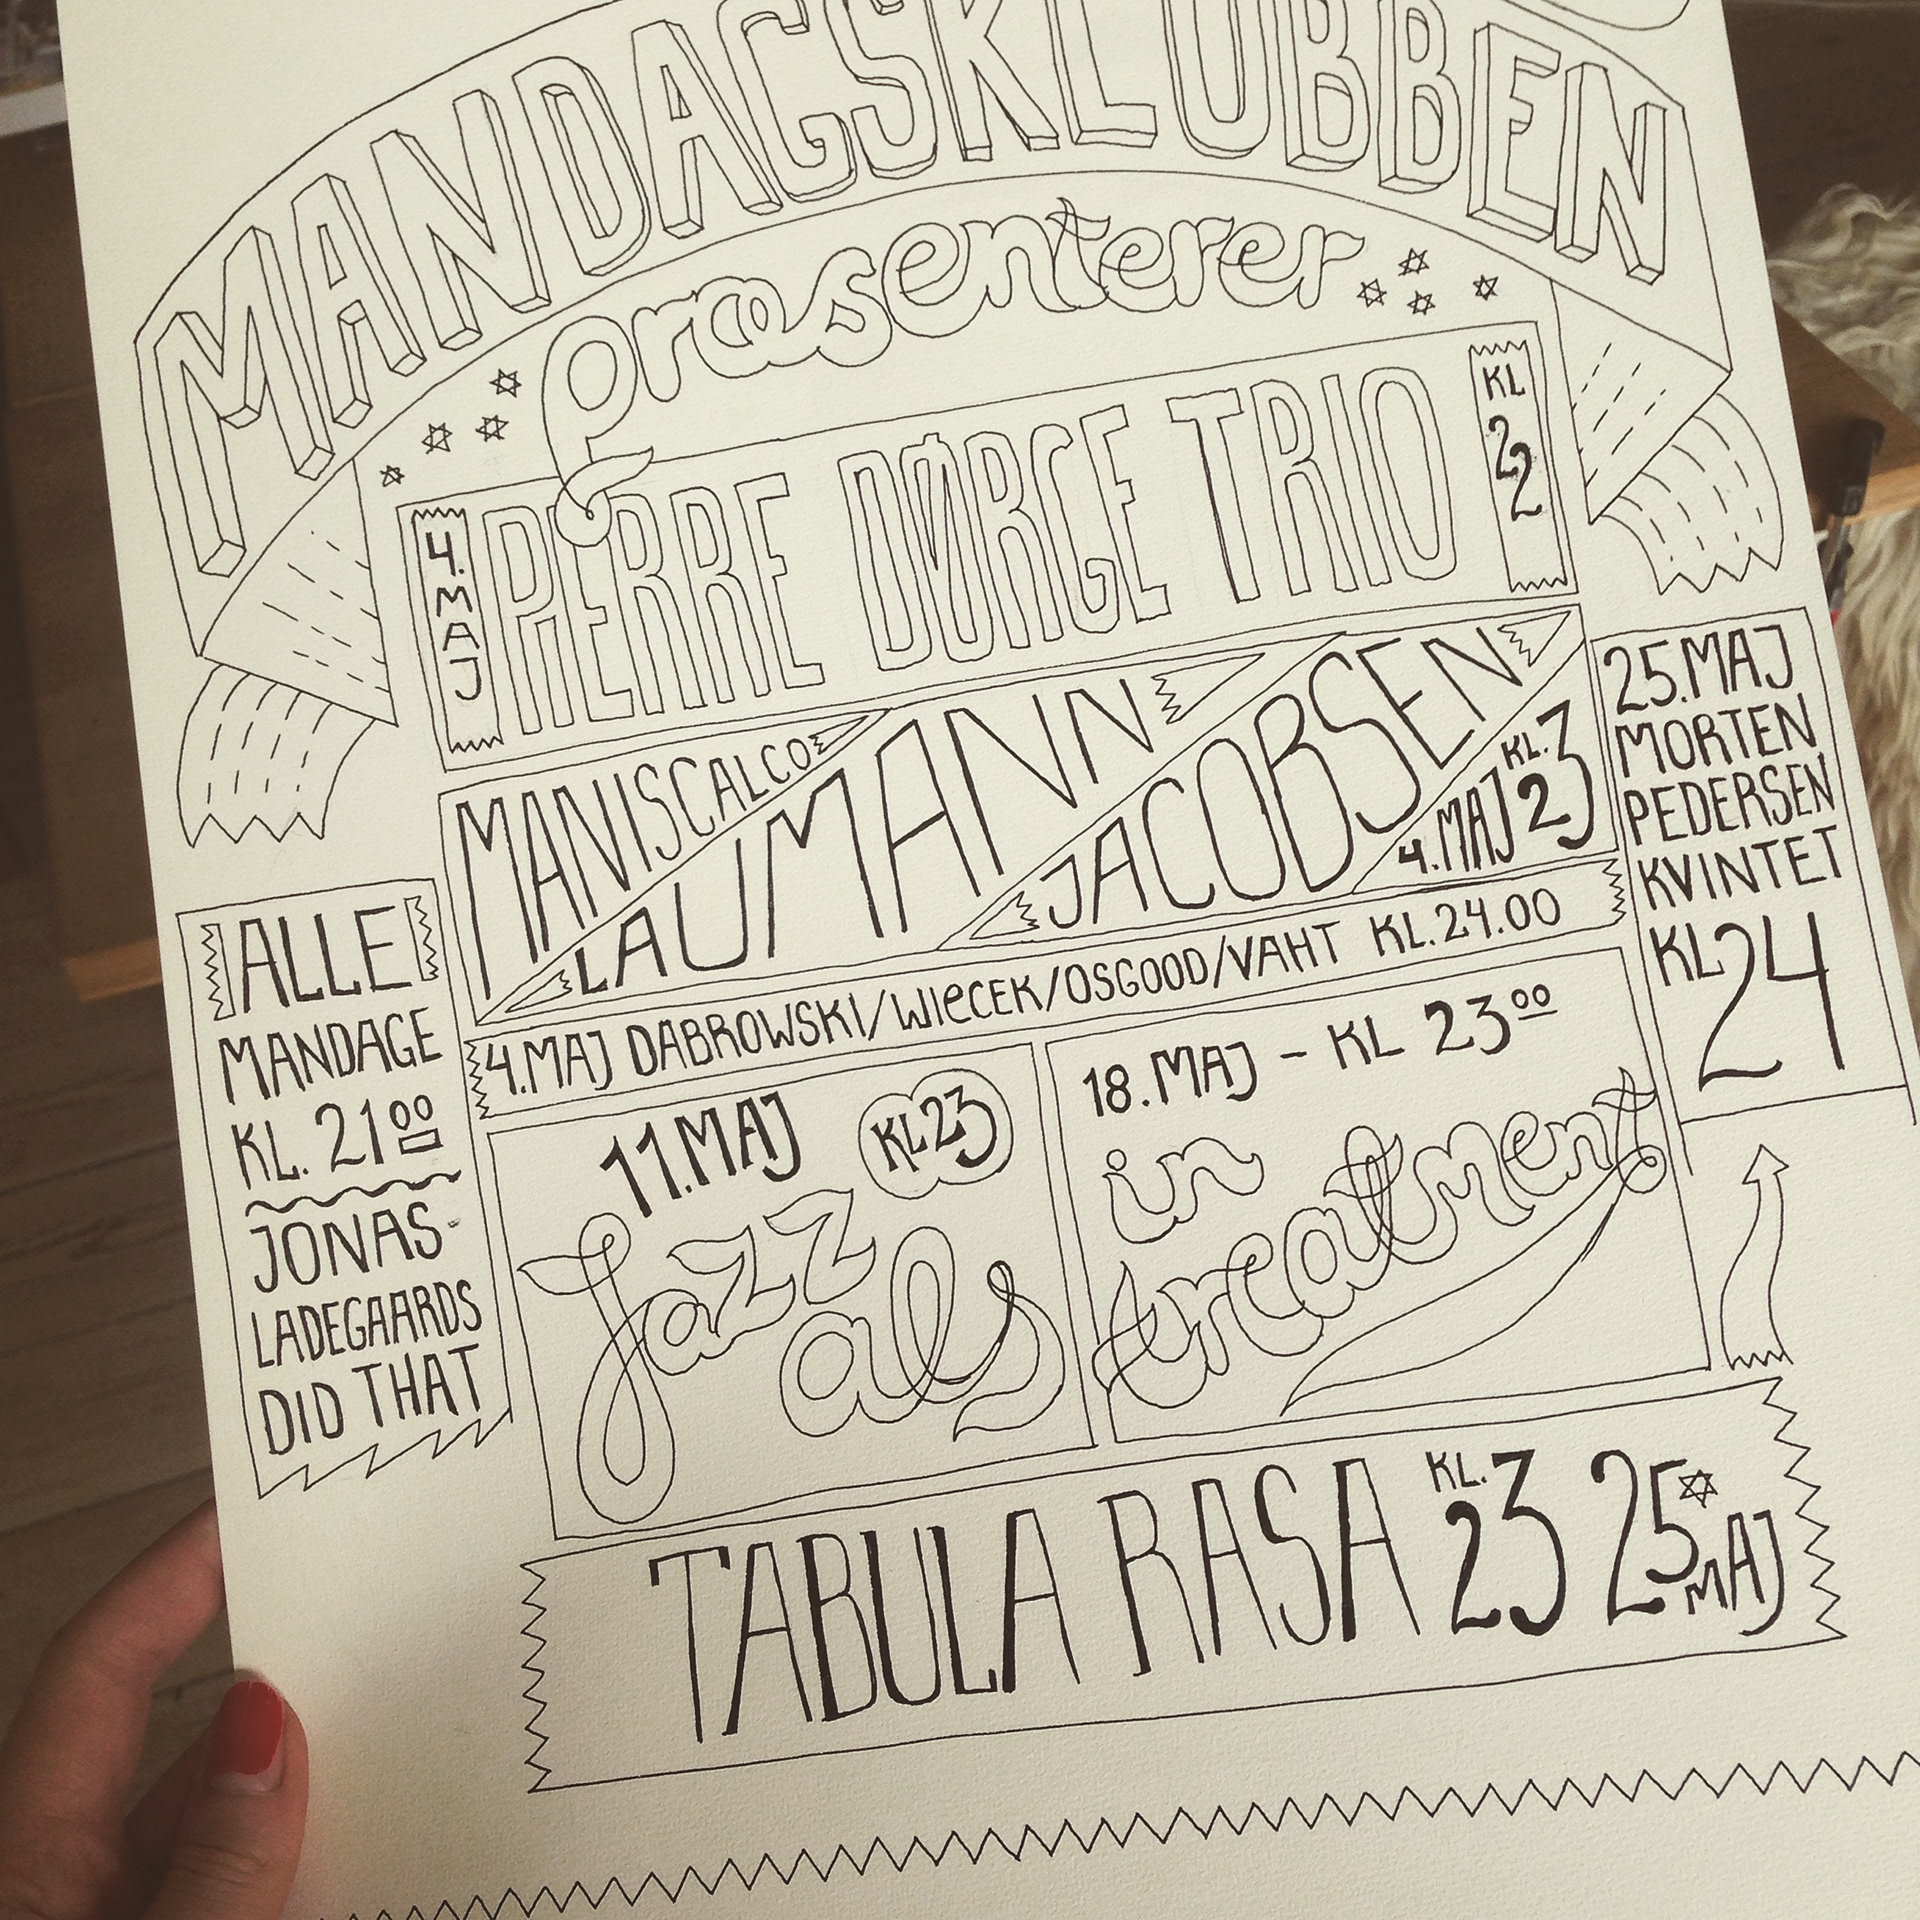 MANDAGSKLUBBEN
præsenterer
4. MAJ
PIERRE DØRGE TRIO
KL 22
MANISCALCO
LAUMANN
JACOBSEN
4. MAJ KL. 23
25. MAJ
MORTEN
PEDERSEN
KVINTET
KL 24
4. MAJ DABROWSKI/WIECEK/OSGOOD/VAHT KL. 24.00
ALLE
MANDAGE
KL. 21 00
JONAS
LADEGAARDS
DID THAT
11. MAJ KL 23
Jazz
als
18. MAJ - KL 23 00
in
treatment
TABULA RASA KL. 23 25 MAJ